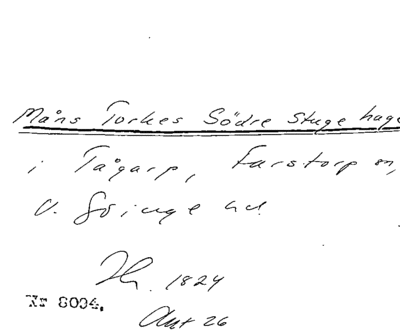 Måns Torkes Södre Stuge hage
i Tågarp, Farstorp sn,
V. Göinge hd.
Hr. 1824
Nr 8094.
Akt 26